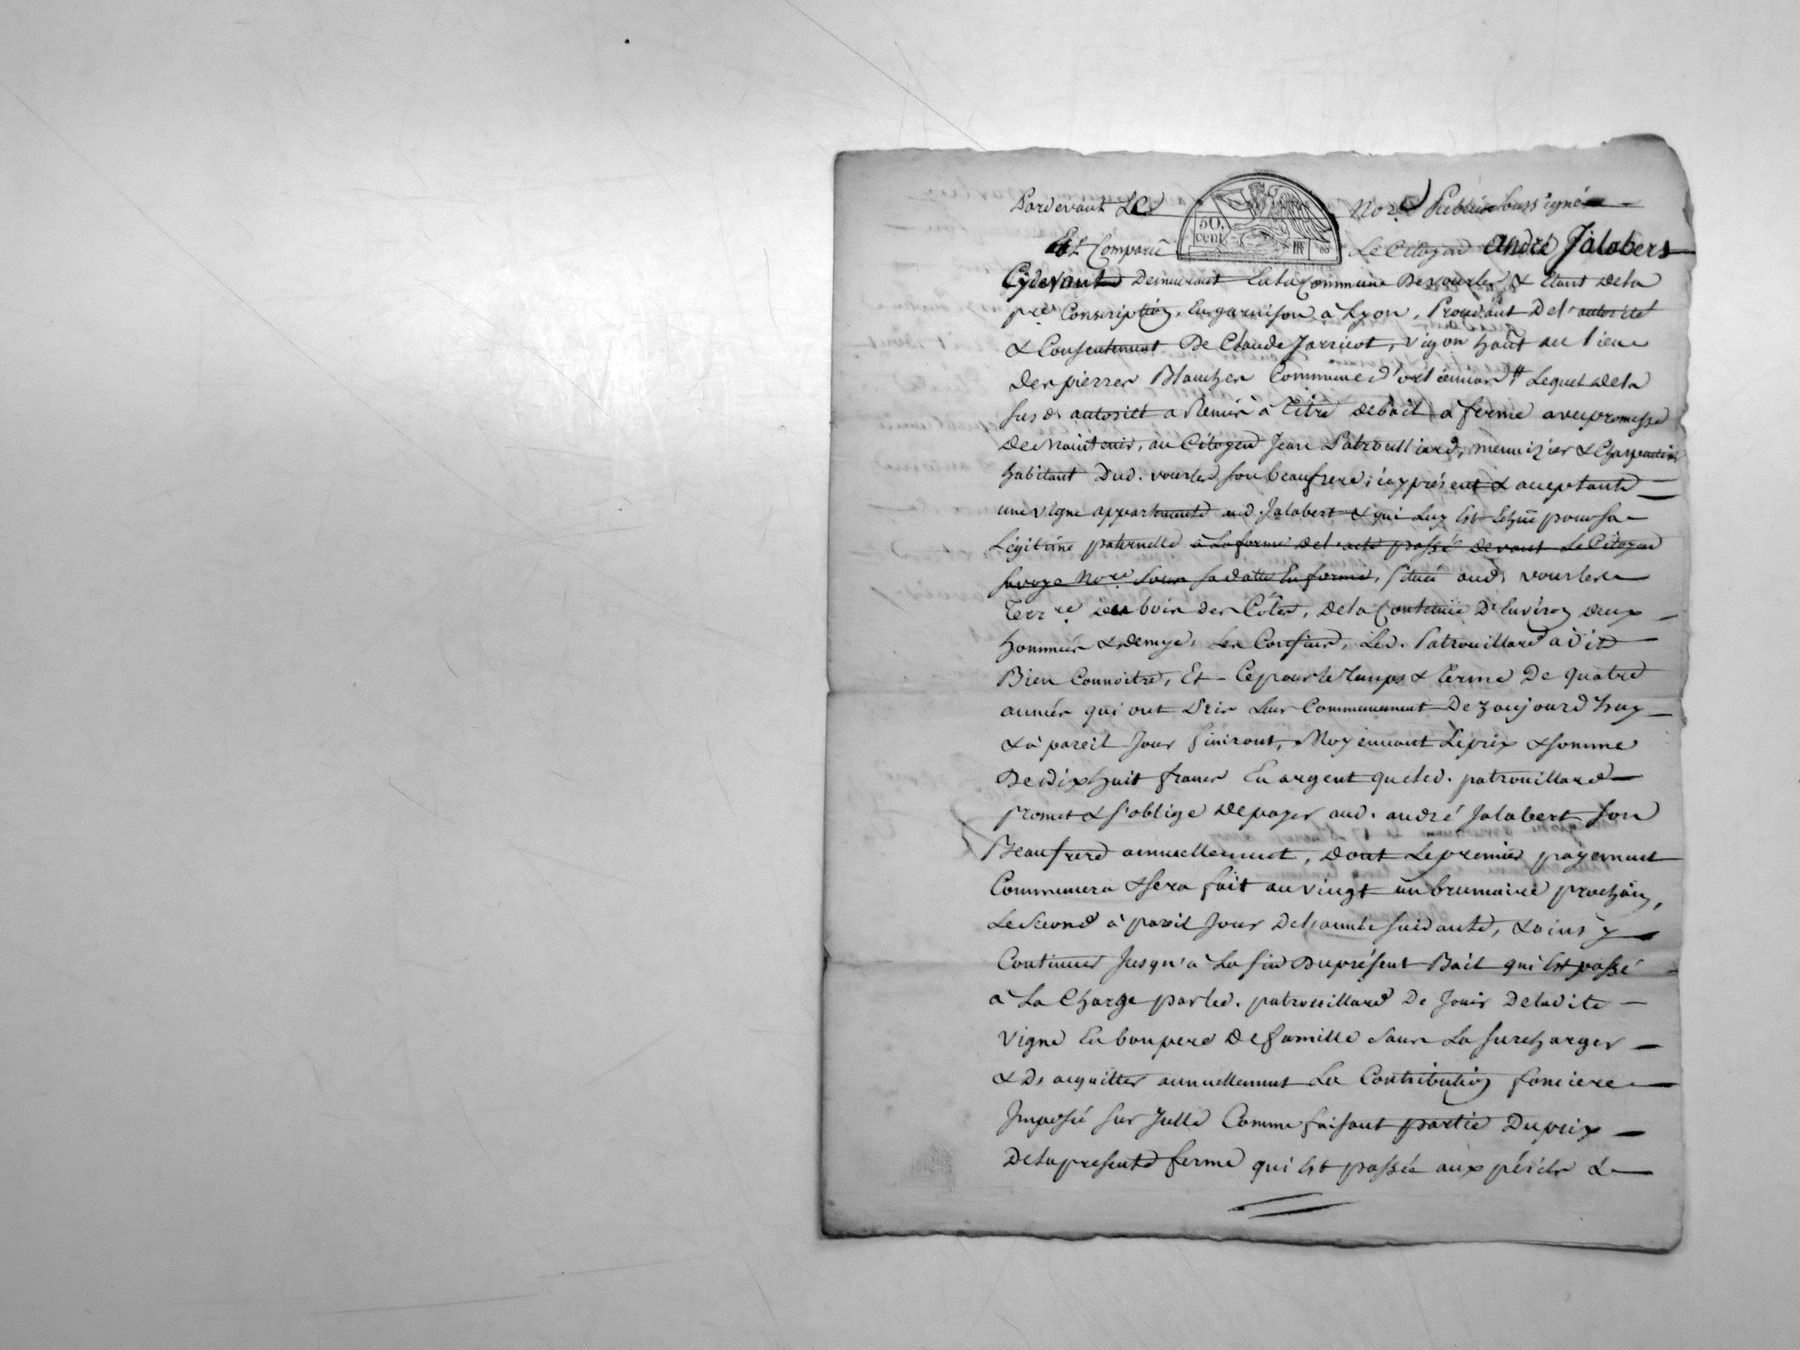 Pardevant Le Nore Public soussigné
Est Comparu Le Citoyen andré Jalabert
Cydevant Demeurant En la Commune De vourles & Etant dela
pre Conscription, En garnison a Lyon, Procédant De l'autorité
& Consentement De Claude Jarricot, vigon haut au lieu
Des pierres Blanches Commune d' Lequel dela
susde autorité a Remis à Titre debail à ferme avec promesse
De Maintenir, au Citoyen Jean Patrouilliard, menuizier & Charpentier
habitant Dud. vourles son beaufrere, icy présent & acceptant
une vigne appartenante aud. Jalabert & qui Luy Est Echüe pour sa
Légitime paternelle à La forme del'acte passé devant Le Citoyen
Nore Sous sa datte En forme, située aud. vourles
Terre Des bois des Côtes, dela Contenüe D'Environ deux
hommées & demye, Les Confins, Led. Patrouillard a dit
Bien Connoitre, Et Ce pour le Temps & terme De quatre
années qui ont Pris Leur Commencement Dez aujourd'huy
& à pareil Jour finiront, Moyennant Le prix & somme
De dix huit francs En argent que led. patrouillard
promet & s'oblige De payer aud. andré Jalabert Son
Beaufrere annuellement, dont Le premier payement
Commencera & sera fait au vingt un brumaire prochain,
Le Second à pareil Jour del'année suivante, & ainsy
Continuer Jusqu'a La fin Duprésent Bail qui Est passé
à La Charge par led. patrouillard De Jouir De ladite
vigne En bon pere De famille Sans La surcharger
& D'acquitter annuellement La Contribution fonciere
Imposée sur Icelle Comme faisant partie Du prix
De la presente ferme qui Est passée aux périls &
50.
cent.